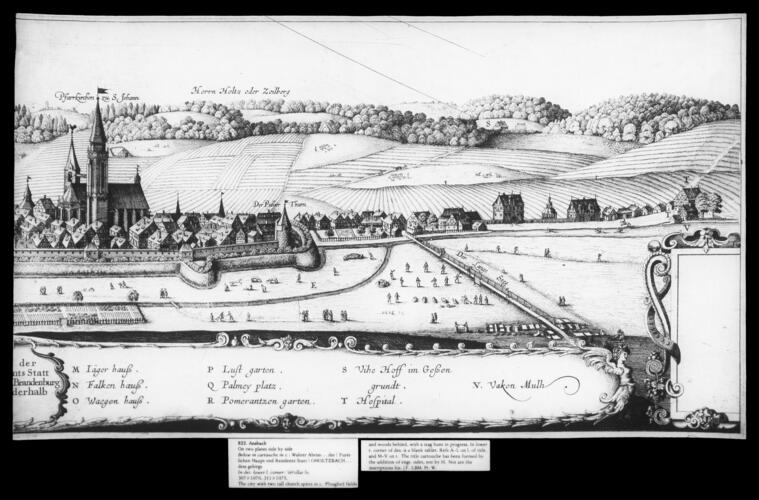 Pfarrkirchen zu S. Johann.
Herrn Holtz oder Zeilberg
S
Der Pulver Thurn.
E
Der neue Steg
der
nts Statt
Brandenburg
derhalb
M Iäger hauß.
N Falken hauß.
O Waegen hauß.
P Lust garten.
Q Palmey platz.
R Pomerantzen garten.
S Vihe Hoff im Geßen
grundt.
T Hospital.
V. Vaken Mulh
822. Ansbach
On two plates side by side
Below in cartouche in c.: Wahrer Abriss
dess gebirgs
In dec. lower l. corner: WHollar fe.
307 × 1076, 311 × 1075.
The city with two tall church spires in c. Ploughed fields
and woods behind, with a stag hunt in progress. In lower
r. corner of dec. is a blank tablet. Refs A–L on l. of title,
and M–V on r. The title cartouche has been formed by
the addition of engr. sides, not by H. Nor are the
inscriptions his.